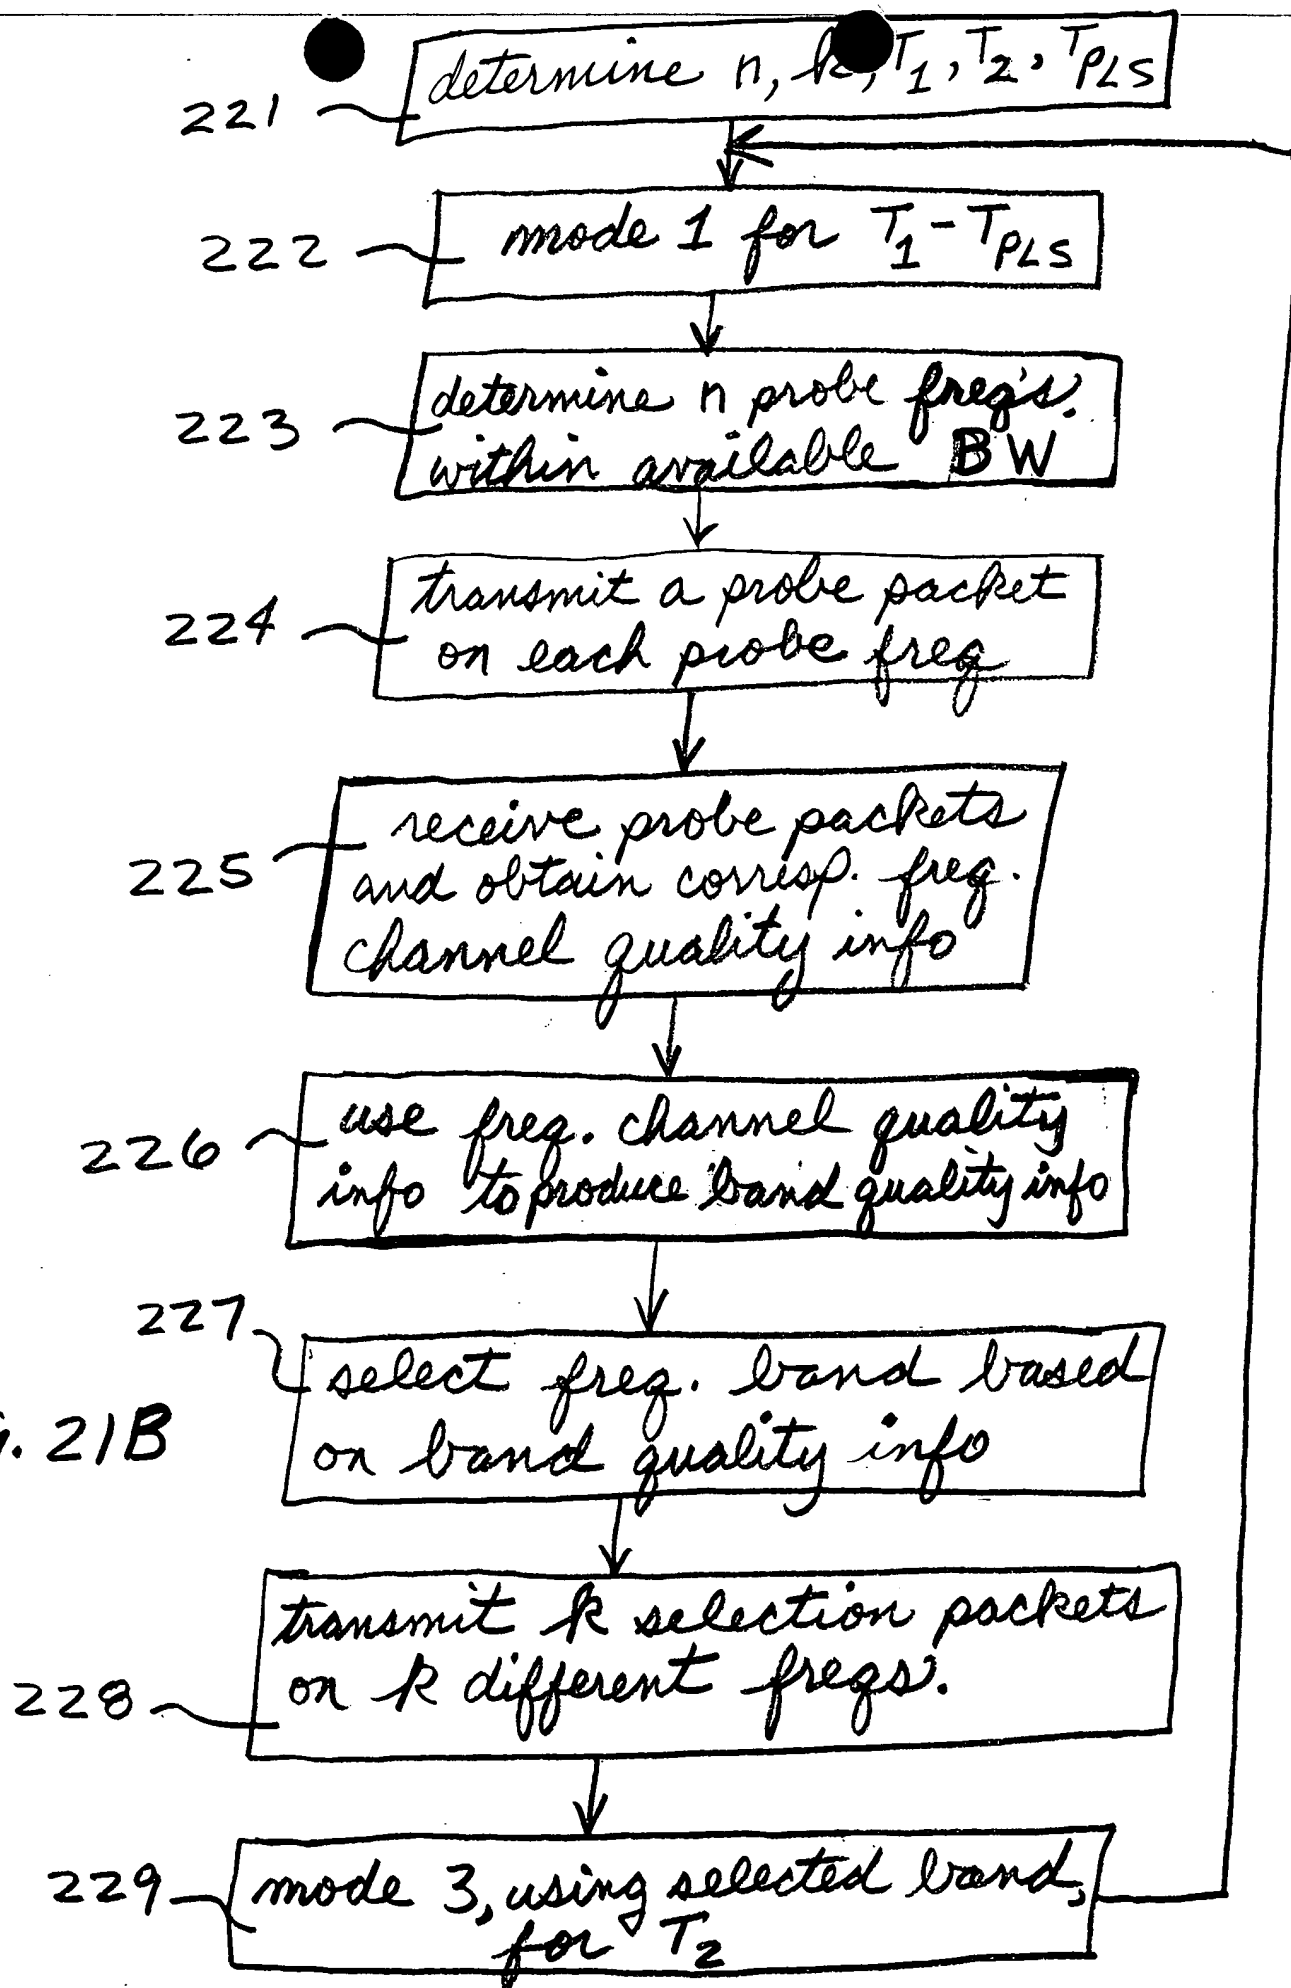 determine n, k, T1, T2, TPLS
221
mode 1 for T1 - TPLS
222
determine n probe freq's.
within available BW
223
transmit a probe packet
on each probe freq
224
receive probe packets
and obtain corresp. freq.
channel quality info
225
use freq. channel quality
info to produce band quality info
226
227
select freq. band based
on band quality info
. 21B
transmit k selection packets
on k different freqs'.
228
mode 3, using selected band,
for T2
229